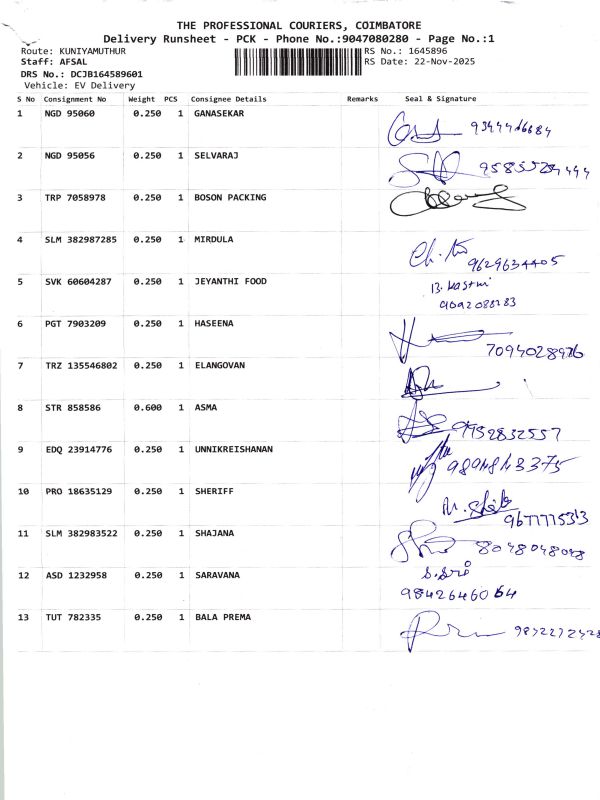 THE PROFESSIONAL COURIERS, COIMBATORE
Delivery Runsheet - PCK - Phone No.:9047080280 - Page No.:1
Route: KUNIYAMUTHUR RS No.: 1645896
Staff: AFSAL RS Date: 22-Nov-2025
DRS No.: DCJB164589601
Vehicle: EV Delivery
S No Consignment No Weight PCS Consignee Details Remarks Seal & Signature
1 NGD 95060 0.250 1 GANASEKAR
2 NGD 95056 0.250 1 SELVARAJ
3 TRP 7058978 0.250 1 BOSON PACKING
4 SLM 382987285 0.250 1 MIRDULA
9629634405
5 SVK 60604287 0.250 1 JEYANTHI FOOD
6 PGT 7903209 0.250 1 HASEENA
7 TRZ 135546802 0.250 1 ELANGOVAN
8 STR 858586 0.600 1 ASMA
9 EDQ 23914776 0.250 1 UNNIKREISHANAN
10 PRO 18635129 0.250 1 SHERIFF
11 SLM 382983522 0.250 1 SHAJANA
8048048048
12 ASD 1232958 0.250 1 SARAVANA
9842646064
13 TUT 782335 0.250 1 BALA PREMA